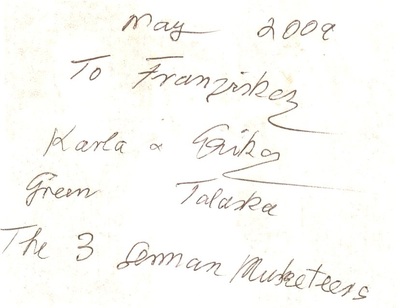 May 2009
To Franziska
Karla & Erika
Green Talaska
The 3 German Musketeers